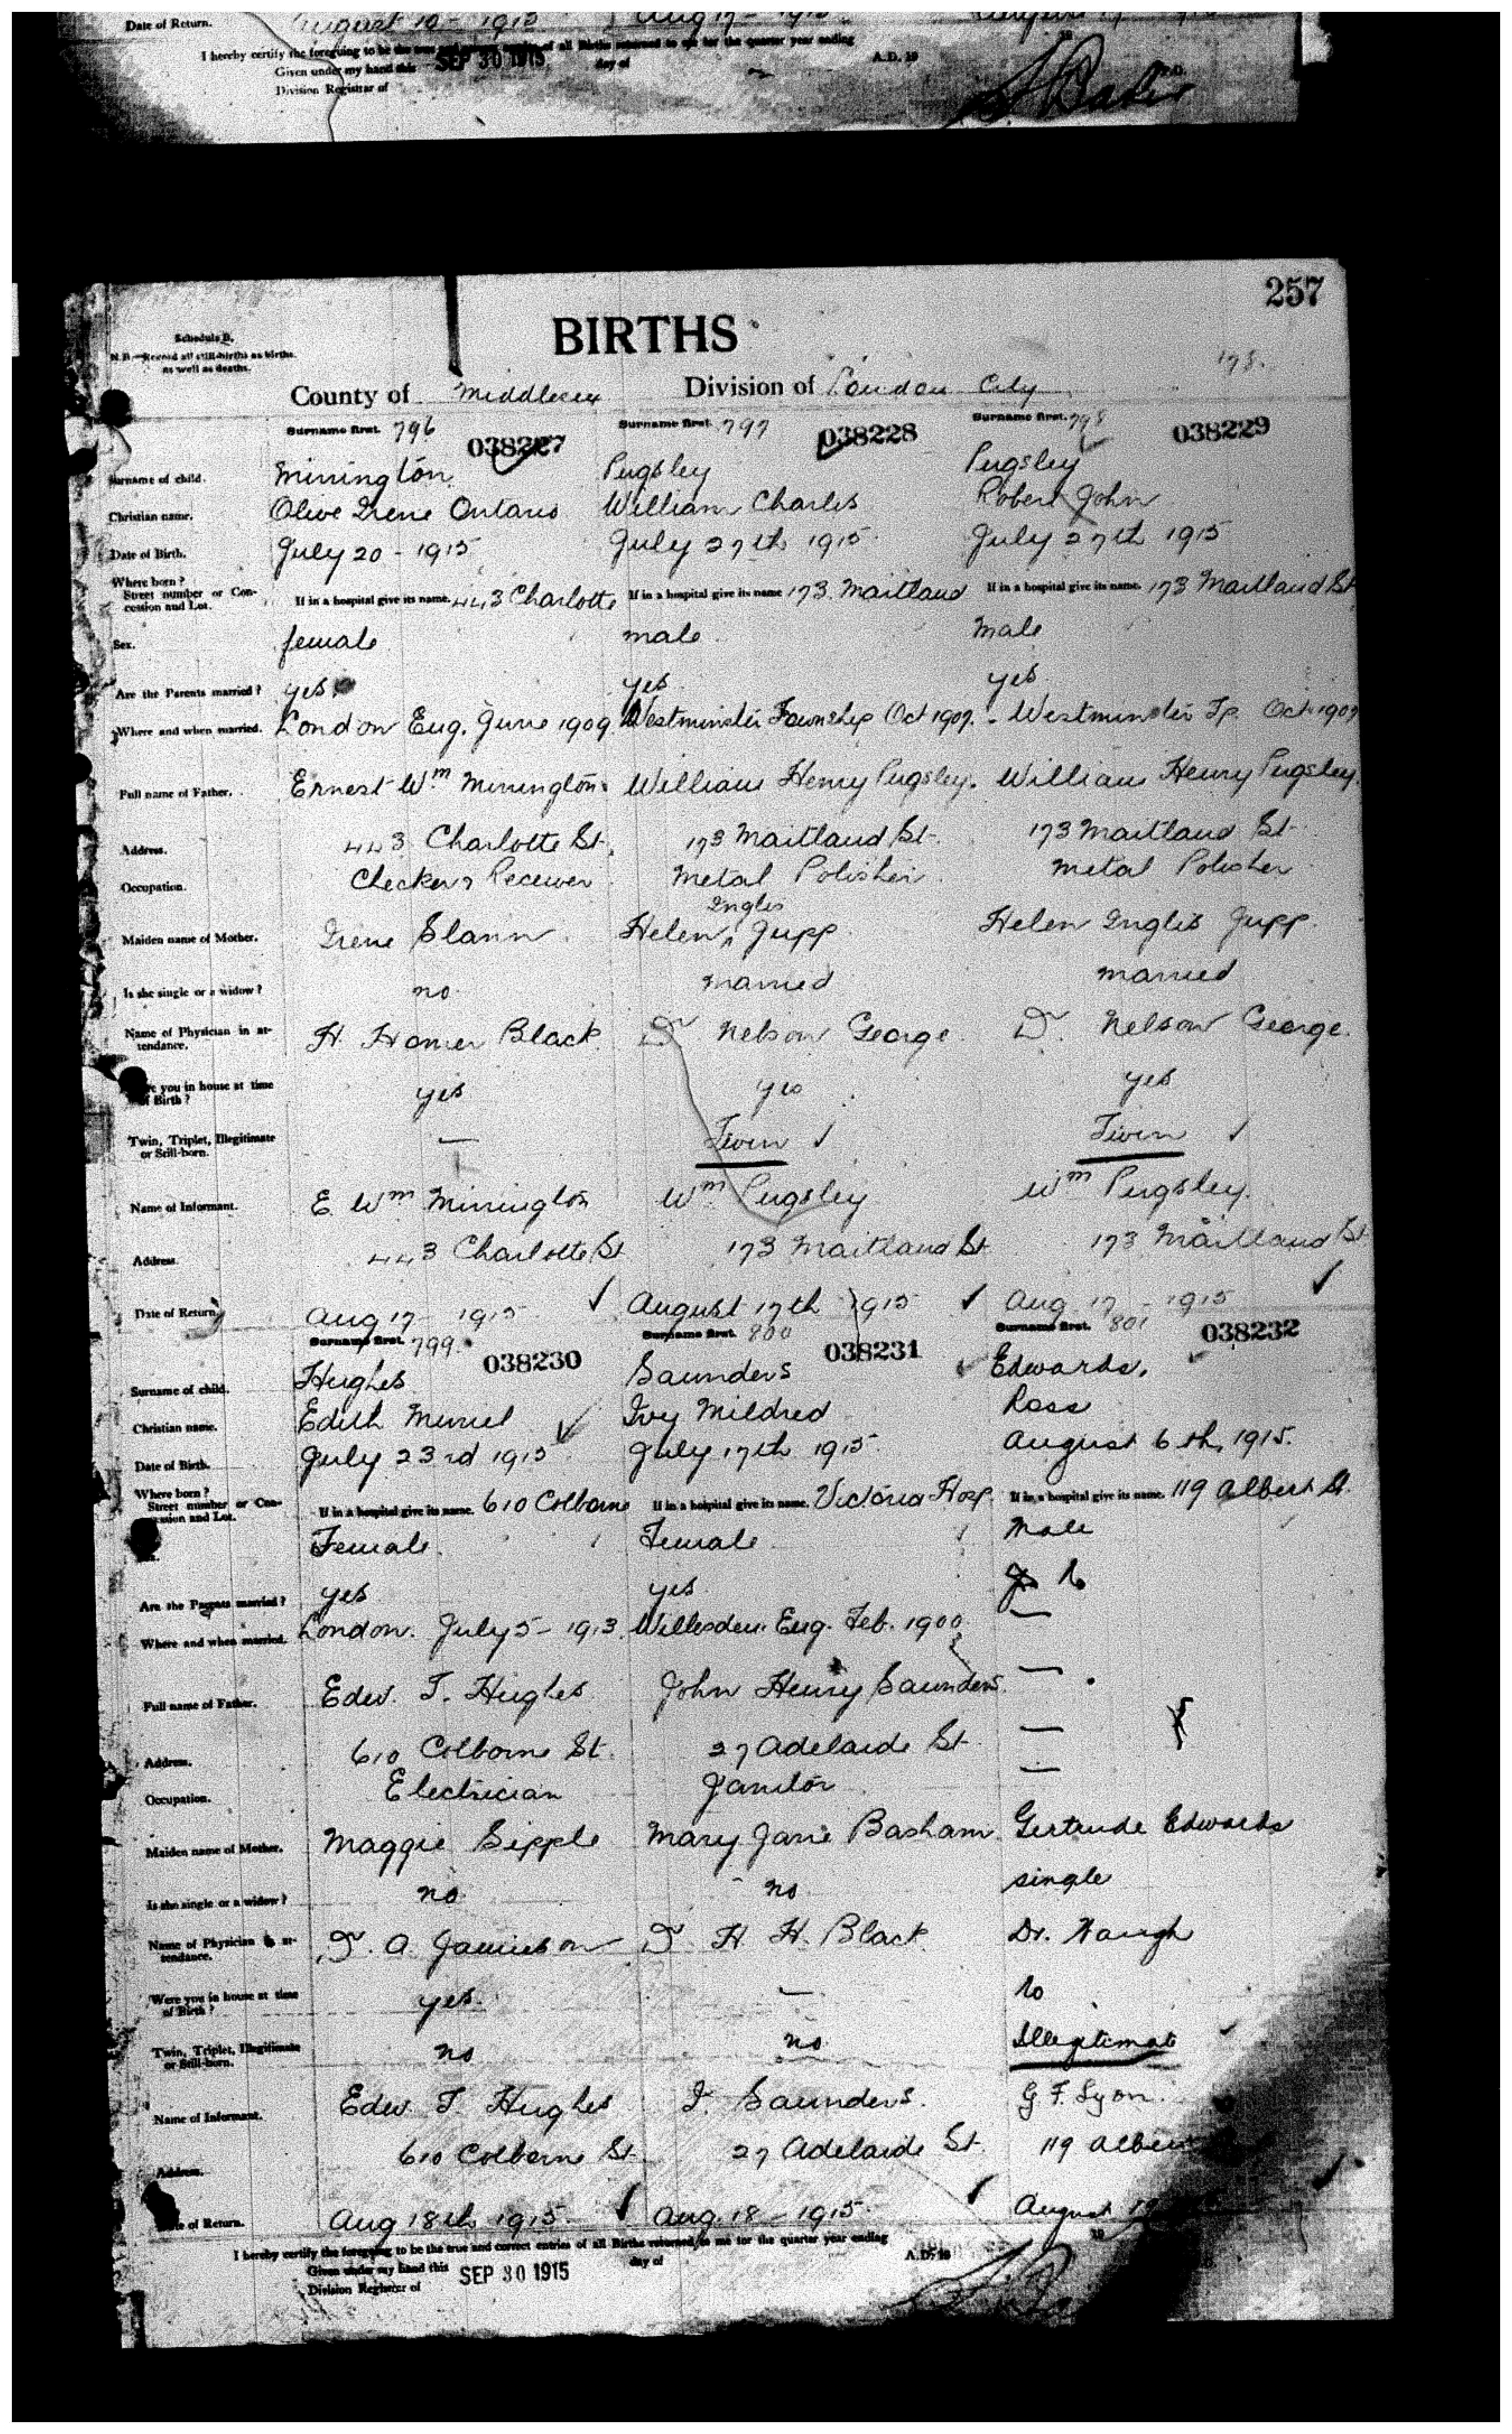 Date of Return. August 10 - 1915 Aug 17 - 1915
I hereby certify the foregoing to be the true and correct entries of all Births returned to me for the quarter year ending
Given under my hand this SEP 30 1915 day of A.D. 19
Division Registrar of
257
Schedule B.
N.B.—Record all still-births as births as well as deaths.
BIRTHS
County of Middlesex Division of London City 178.
Surname first. 796 038227 Surname first. 797 038228 Surname first. 798 038229
Surname of child. Minington Pugsley Pugsley
Christian name. Olive Irene Ontario William Charles Robert John
Date of Birth. July 20 - 1915 July 27th 1915 July 27th 1915
Where born? Street number or Concession and Lot. If in a hospital give its name. 443 Charlotte If in a hospital give its name 173 Maitland If in a hospital give its name. 173 Maitland St
Sex. female male male
Are the Parents married? yes yes yes
Where and when married. London Eng. June 1909 Westminster Township Oct 1907. Westminster Tp. Oct 1907
Full name of Father. Ernest Wm Minington William Henry Pugsley. William Henry Pugsley.
Address. 443 Charlotte St. 173 Maitland St. 173 Maitland St.
Occupation. Checker & Receiver Metal Polisher Metal Polisher
Maiden name of Mother. Irene Slann Helen Inglis Jupp Helen Inglis Jupp
Is she single or a widow? no married married
Name of Physician in attendance. H. Homer Black Dr Nelson George Dr. Nelson George.
Were you in house at time of Birth? yes yes yes
Twin, Triplet, Illegitimate or Still-born. — Twin Twin
Name of Informant. E. Wm Minington Wm Pugsley Wm Pugsley.
Address. 443 Charlotte St 173 Maitland St 173 Maitland St
Date of Return. Aug 17 - 1915 August 17th 1915 Aug. 17 - 1915
Surname first. 799. 038230 Surname first. 800 038231 Surname first. 801 038232
Surname of child. Hughes Saunders Edwards.
Christian name. Edith Muriel Ivy Mildred Ross
Date of Birth. July 23rd 1915 July 17th 1915. August 6th, 1915.
Where born? Street number or Concession and Lot. If in a hospital give its name. 610 Colborne If in a hospital give its name. Victoria Hosp. If in a hospital give its name. 119 Albert St.
Female Female Male
Are the Parents married? yes yes No
Where and when married. London. July 5 - 1913. Willesden. Eng. Feb. 1900 —
Full name of Father. Edw. T. Hughes John Henry Saunders. —
Address. 610 Colborne St. 27 Adelaide St —
Occupation. Electrician Janitor —
Maiden name of Mother. Maggie Sipple Mary Jane Basham Gertrude Edwards
Is she single or a widow? no no single
Name of Physician in attendance. Dr. A. Jamieson Dr H. H. Black Dr. Waugh
Were you in house at time of Birth? yes. — No
Twin, Triplet, Illegitimate or Still-born. no no Illegitimate
Name of Informant. Edw. T. Hughes J. Saunders. G. F. Lyon.
Address. 610 Colborne St. 27 Adelaide St. 119 Albert
Date of Return. Aug 18th 1915. Aug. 18 - 1915. August
I hereby certify the foregoing to be the true and correct entries of all Births returned to me for the quarter year ending
Given under my hand this SEP 30 1915 day of A.D. 19
Division Registrar of